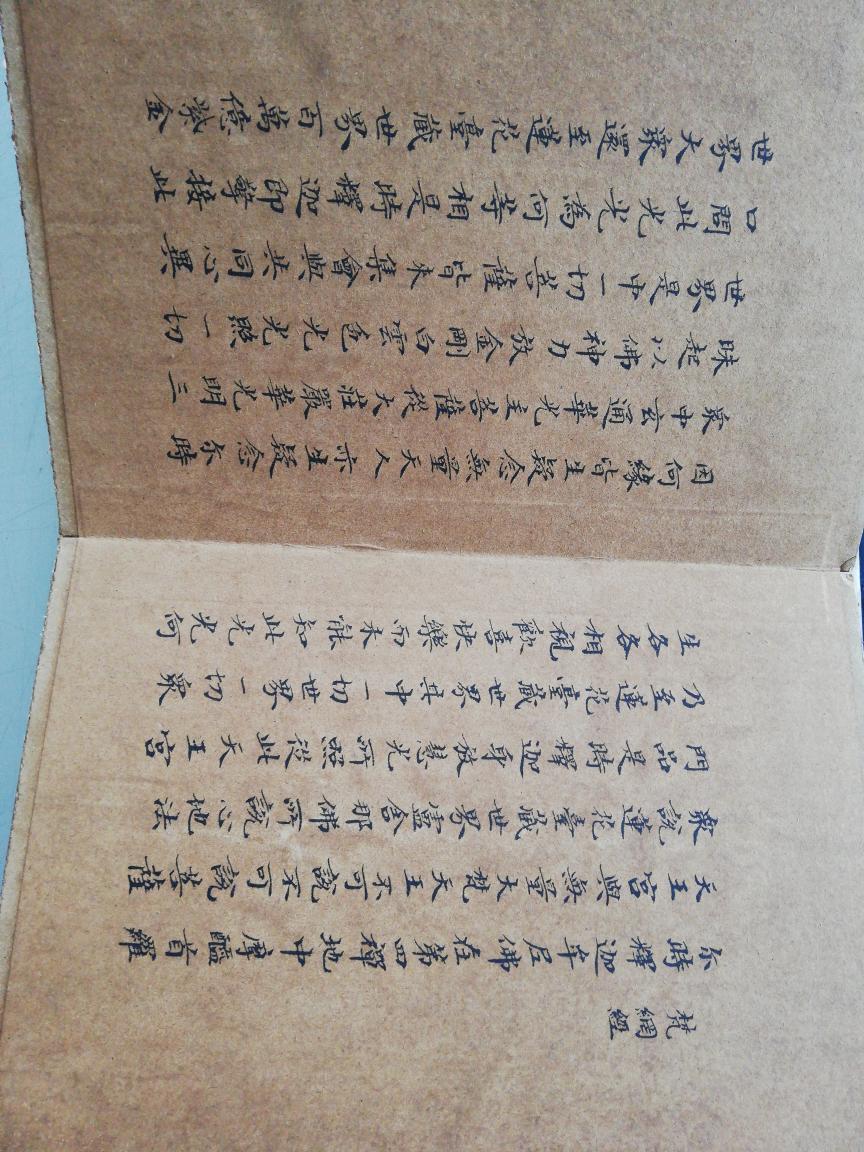 梵網經
尔時釋迦牟尼佛在第四禪地中摩醯首羅
天王宮與無量大梵天王不可說不可說菩薩
衆說蓮花臺藏世界盧舍那佛所說心地法
門品是時釋迦身放慧光所照從此天王宮
乃至蓮花臺藏世界其中一切世界一切衆
生各各相視歡喜快樂而未能知此光光何
因何緣皆生疑念無量天人亦生疑念尔時
衆中玄通華光主菩薩從大莊嚴華光明三
昧起以佛神力放金剛白雲色光光照一切
世界是中一切菩薩皆來集會與共同心異
口問此光光為何等相是時釋迦即擎接此
世界大衆還至蓮花臺藏世界百萬億紫金